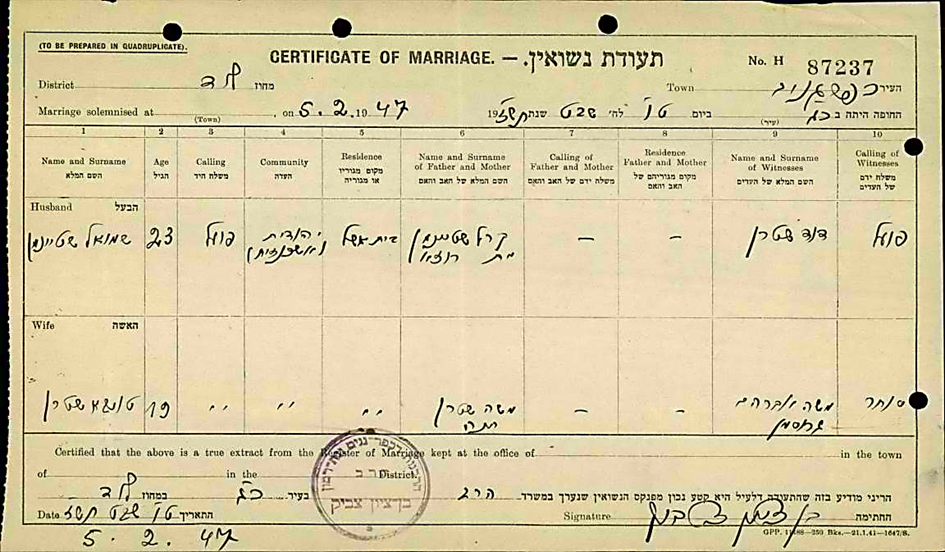 (TO BE PREPARED IN QUADRUPLICATE).
CERTIFICATE OF MARRIAGE. — תעודת נשואין.
No. H 87237
District מחוז לוד Town העיר
Marriage solemnised at , on 5.2.1947 ביום טו לח' שבט שנת תש"ז החופה היתה ב
(Town) (עיר)
1 2 3 4 5 6 7 8 9 10
Name and Surname Age Calling Community Residence Name and Surname of Father and Mother Calling of Father and Mother Residence of Father and Mother Name and Surname of Witnesses Calling of Witnesses
השם המלא הגיל משלח היד העדה מקום מגוריו או מגוריה השם המלא של האב והאם משלח ידם של האב והאם מקום מגוריהם של האב והאם השם המלא של העדים משלח ידם של העדים
Husband הבעל
שמואל 23 פועל יהודית (אשכנזית) קרל — — דוד שטרן פועל
Wife האשה
שטרן 19 " " " משה שטרן — — משה אברהם סוחר
Certified that the above is a true extract from the Register of Marriage kept at the office of in the town
of in the District.
הריני מודיע בזה שהתעודה דלעיל היא קטע נכון מפנקס הנשואין שנערך במשרד הרב בעיר במחוז לוד
Date התאריך טו שבט תש"ז Signature החתימה
5.2.47
הרב
בן־ציון צביק
GPP. 11688—250 Bks.—21.1.41—1647/S.